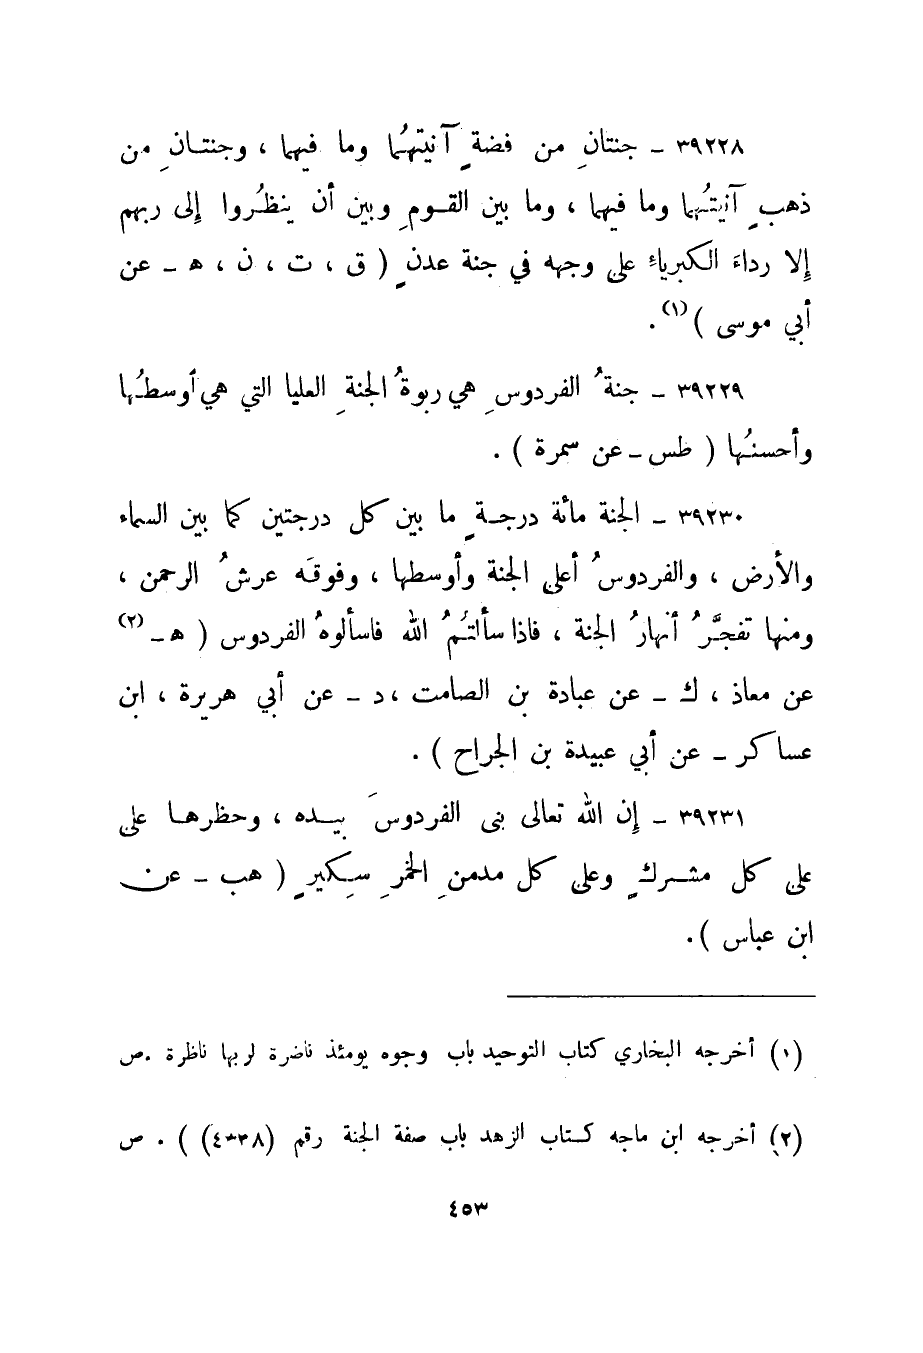 ٣٩٢٢٨ ــ جنتانِ من فضةٍ آنيتُهُما وما فيهما ، وجنتانِ من
ذهبٍ آنيتُهما وما فيهما ، وما بين القومِ وبين أن ينظُروا إلى ربهم
إلا رداءَ الكبرياءِ على وجهه في جنة عدنٍ ( ق ، ت ، ن ، ه ــ عن
أبي موسى )(١) .
٣٩٢٢٩ ــ جنةُ الفردوسِ هي ربوةُ الجنةِ العليا التي هي أوسطُها
وأحسنُها ( طس ــ عن سمرة ) .
٣٩٢٣٠ ــ الجنة مائة درجةٍ ما بين كل درجتين كما بين السماء
والأرض ، والفردوسُ أعلى الجنة وأوسطها ، وفوقَه عرشُ الرحمن ،
ومنها تفجَّرُ أنهارُ الجنة ، فاذا سألتُمُ الله فاسألوهُ الفردوس ( ه ــ (٢)
عن معاذ ، ك ــ عن عبادة بن الصامت ، د ــ عن أبي هريرة ، ابن
عساكر ــ عن أبي عبيدة بن الجراح ) .
٣٩٢٣١ ــ إن الله تعالى بنى الفردوسَ بيده ، وحظرها على
على كل مشركٍ وعلى كل مدمنِ الخمرِ سِكيرٍ ( هب ــ عن
ابن عباس ) .
(١) أخرجه البخاري كتاب التوحيد باب وجوه يومئذ ناضرة لربها ناظرة . ص
(٢) أخرجه ابن ماجه كتاب الزهد باب صفة الجنة رقم (٤٣٣٨) ) . ص
٤٥٣